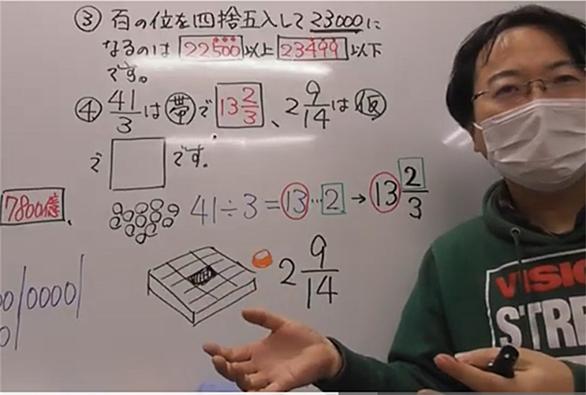 ③ 百の位を四捨五入して23000に
なるのは 22500 以上 23499 以下
です。
④ 41/3 は帯で 13 2/3 、2 9/14 は仮
で です。
7800億、
41÷3=13…2→13 2/3
00|0000|
2 9/14
0|
STRE